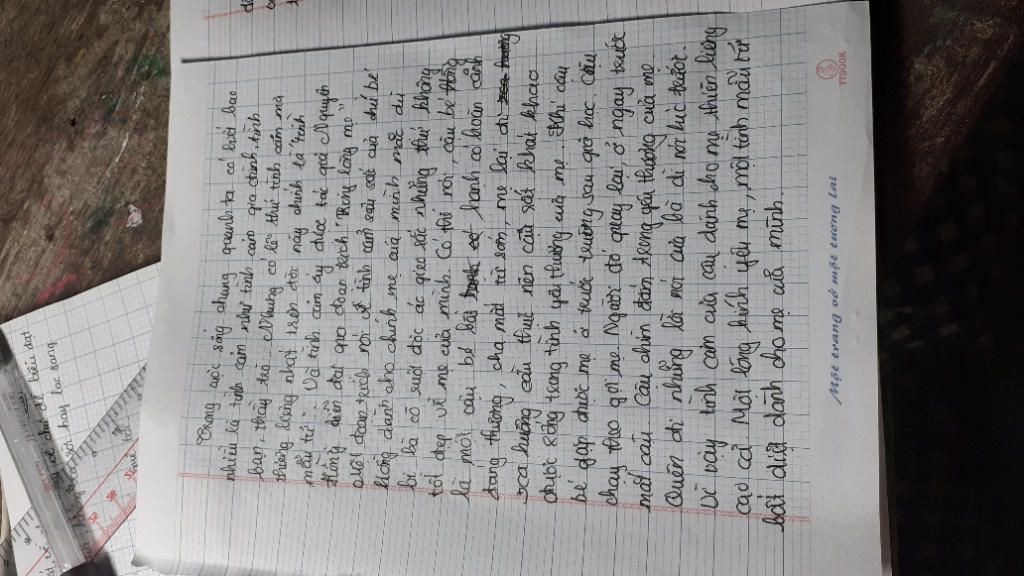 Trong cuộc sống chung quanh ta có biết bao
nhiêu là tình cảm như tình cảm gia đình, tình
bạn, thầy trò. Nhưng có lẽ thứ tình cảm mà
thiêng liêng nhất trên đời này chính là "tình
mẫu tử". Và tình cảm ấy được tác giả Nguyên
Hồng diễn đạt qua đoạn trích "Trong lòng mẹ"
một đoạn trích nói về tình cảm sâu sắc của chú bé
Hồng dành cho chính mẹ của mình mặc dù
bị bà cô suốt độc ác gieo rắc những thứ không
tốt đẹp về mẹ của mình. Có thể nói, cậu bé Hồng
là một cậu bé bất hạnh có hoàn cảnh
đáng thương, cha mất từ sớm, mẹ lại đi
xa hương cầu thực nên cậu rất khát khao
được sống trong tình yêu thương của mẹ. Khi cậu
bé gặp được mẹ ở trước trường sau giờ học cậu
chạy tào gọi mẹ. Người đó quay lại, ở ngay trước
mắt cậu. Cậu chìm đắm trong yêu thương của mẹ
Quên đi những lời nói của bà dì nói lúc trước.
Vì vậy tình cảm của cậu dành cho mẹ thiêng liêng
cao cả. Một lòng kính yêu mẹ, một tình mẫu tử
bất diệt dành cho mẹ của mình.
TIBOOK
Mặt trang vở mặt tương lai
hay lac sang